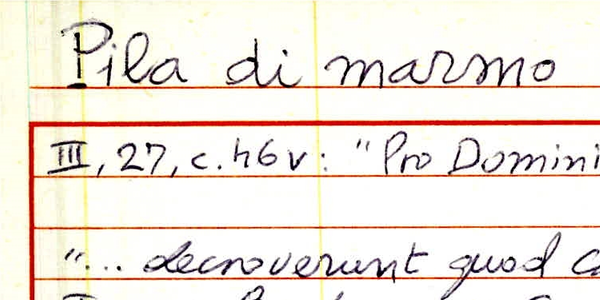 Pila di marmo
III, 27, c. 46v: "Pro Domini
"... decroverunt quod c